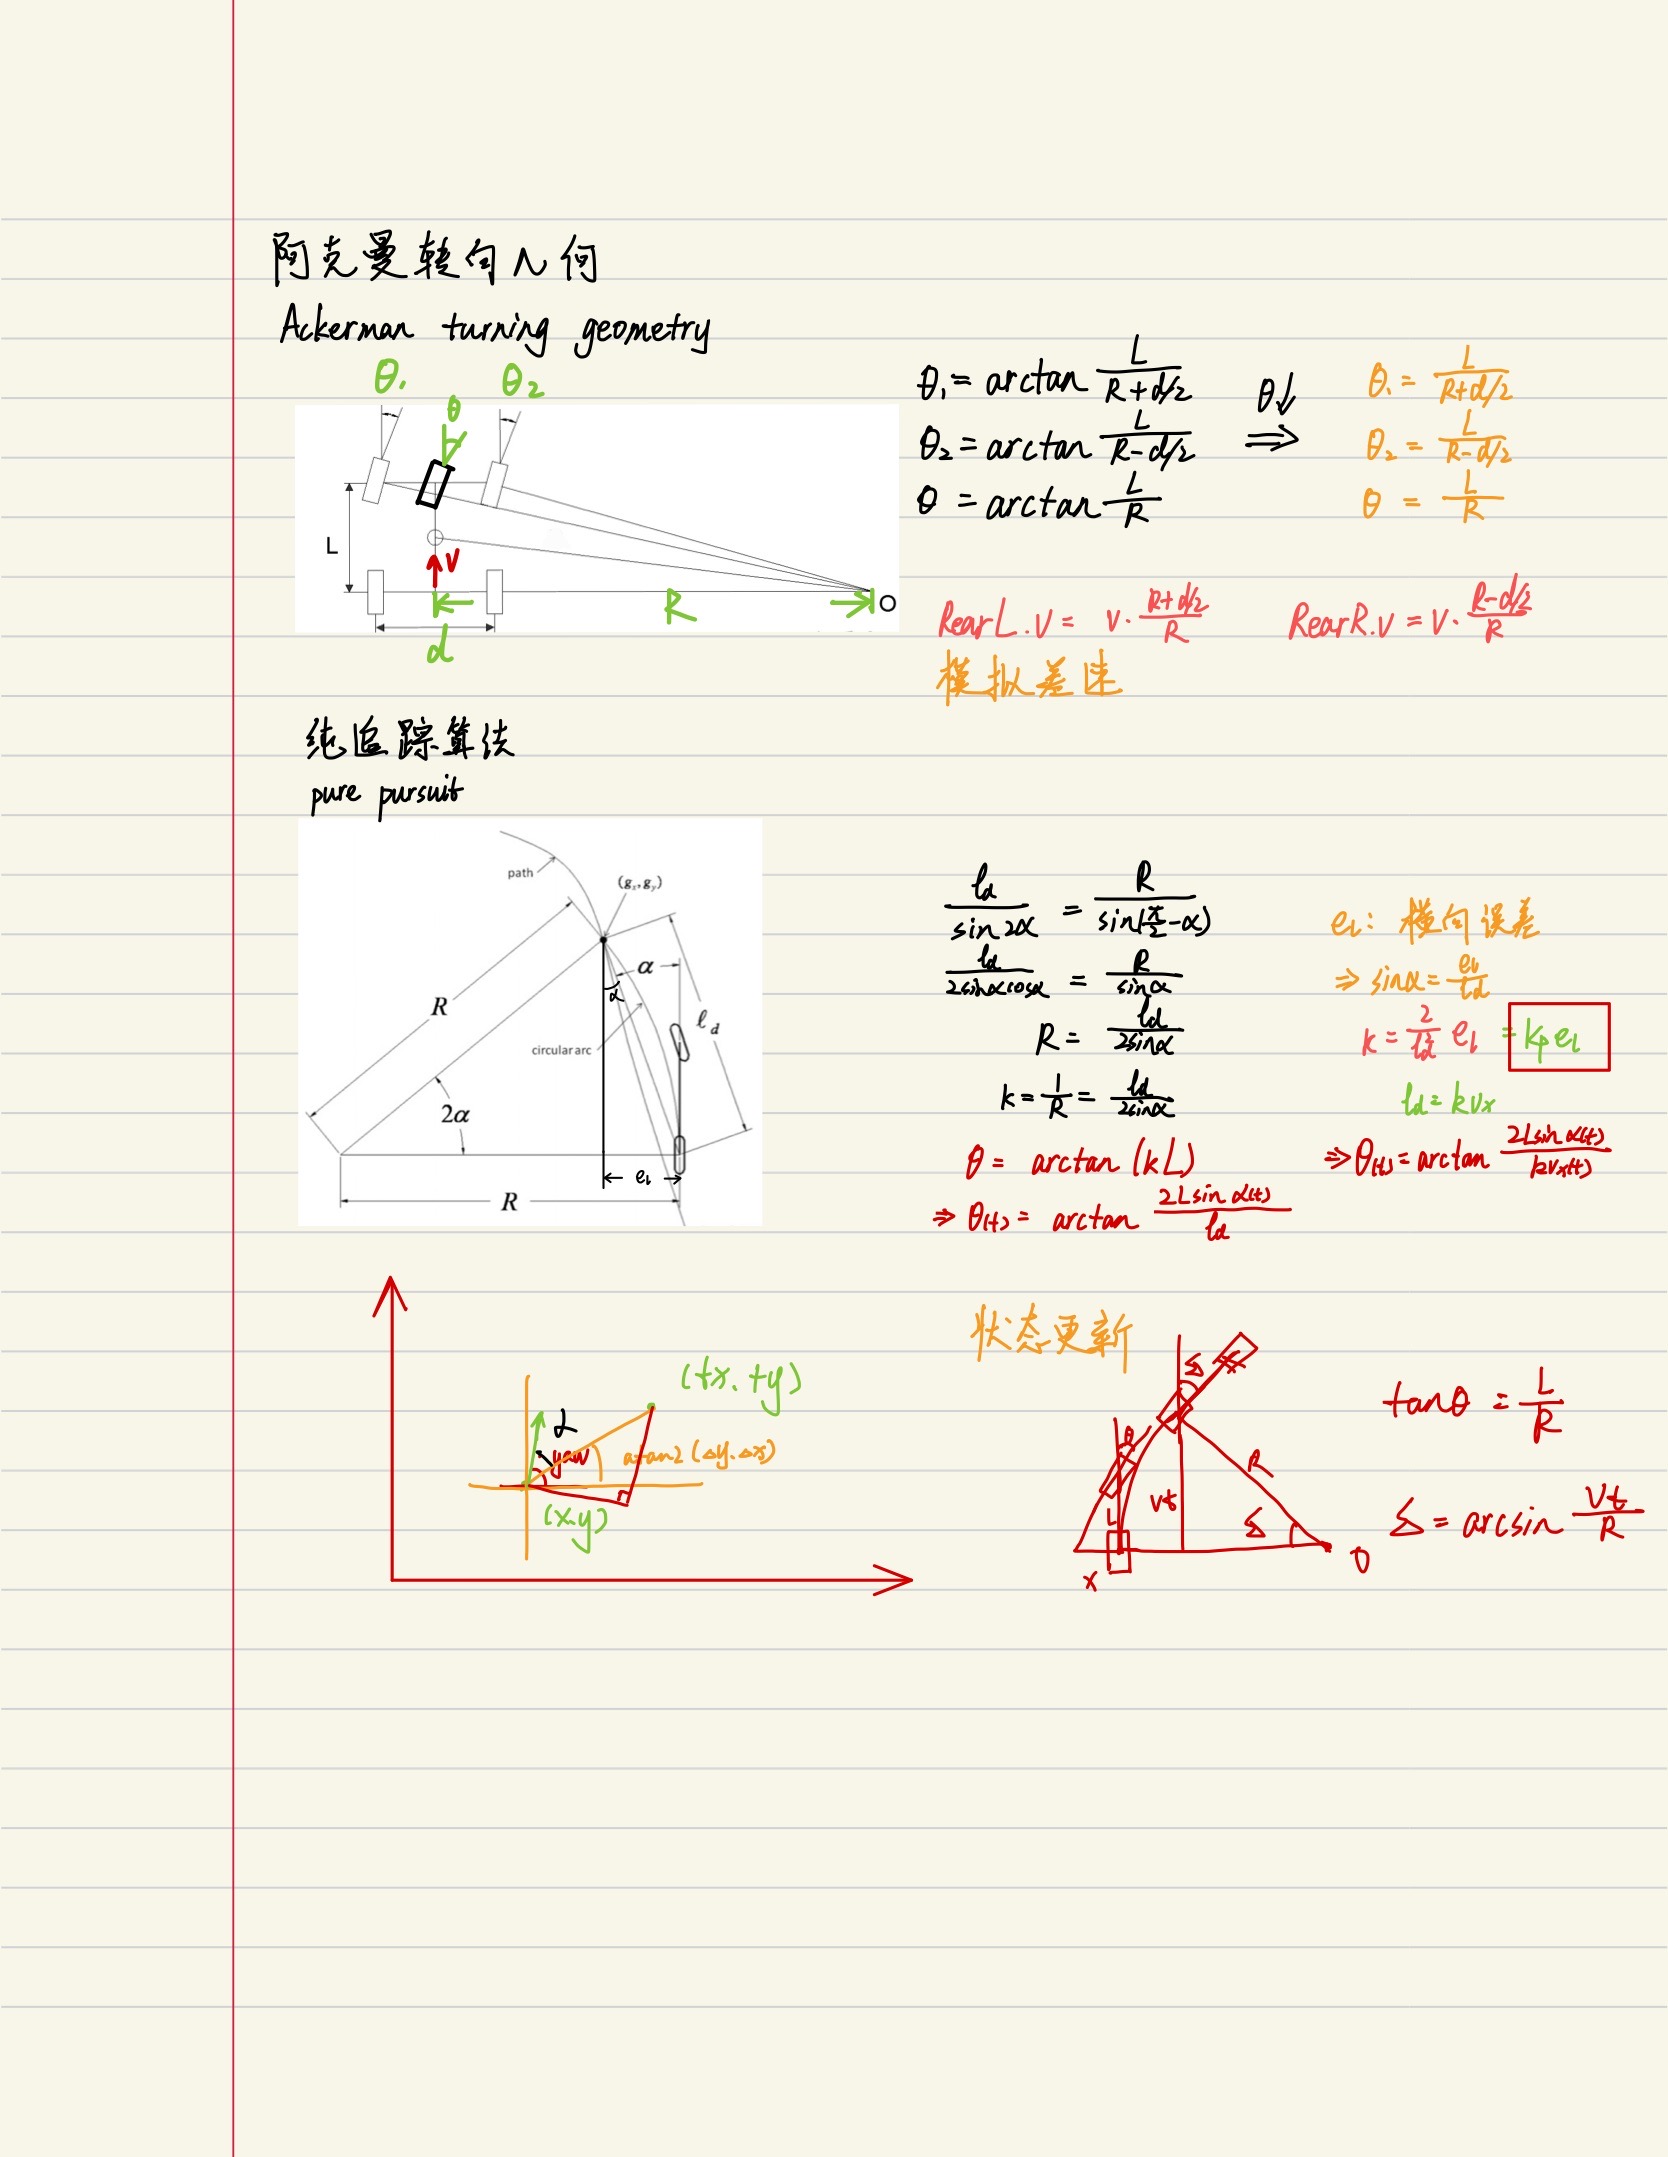 阿克曼转向几何
Ackerman turning geometry
θ₁ θ₂
θ
L
V
R
O
d
θ₁ = arctan L/(R+d/2)
θ₂ = arctan L/(R-d/2)
θ = arctan L/R
θ↓ ⇒
θ₁ = L/(R+d/2)
θ₂ = L/(R-d/2)
θ = L/R
RearL.v = v · (R+d/2)/R
RearR.v = v · (R-d/2)/R
模拟差速
纯追踪算法
pure pursuit
path
(gₓ,gᵧ)
α
α
R
ℓd
circular arc
2α
eₗ
R
ld/sin2α = R/sin(π/2-α)
ld/2sinαcosα = R/sinα
R = ld/2sinα
k = 1/R = ld/2sinα
θ = arctan (kL)
⇒ θ(t) = arctan 2Lsinα(t)/ld
eₗ: 横向误差
⇒ sinα = eₗ/ld
k = 2/ld² eₗ = kp eₗ
ld = kvx
⇒ θ(t) = arctan 2Lsinα(t)/kvx(t)
(tx. ty)
α
yaw
atan2 (Δy. Δx)
(x.y)
状态更新
Δ
θ
R
L
vt
Δ
x
O
tanθ = L/R
Δ = arcsin Vt/R